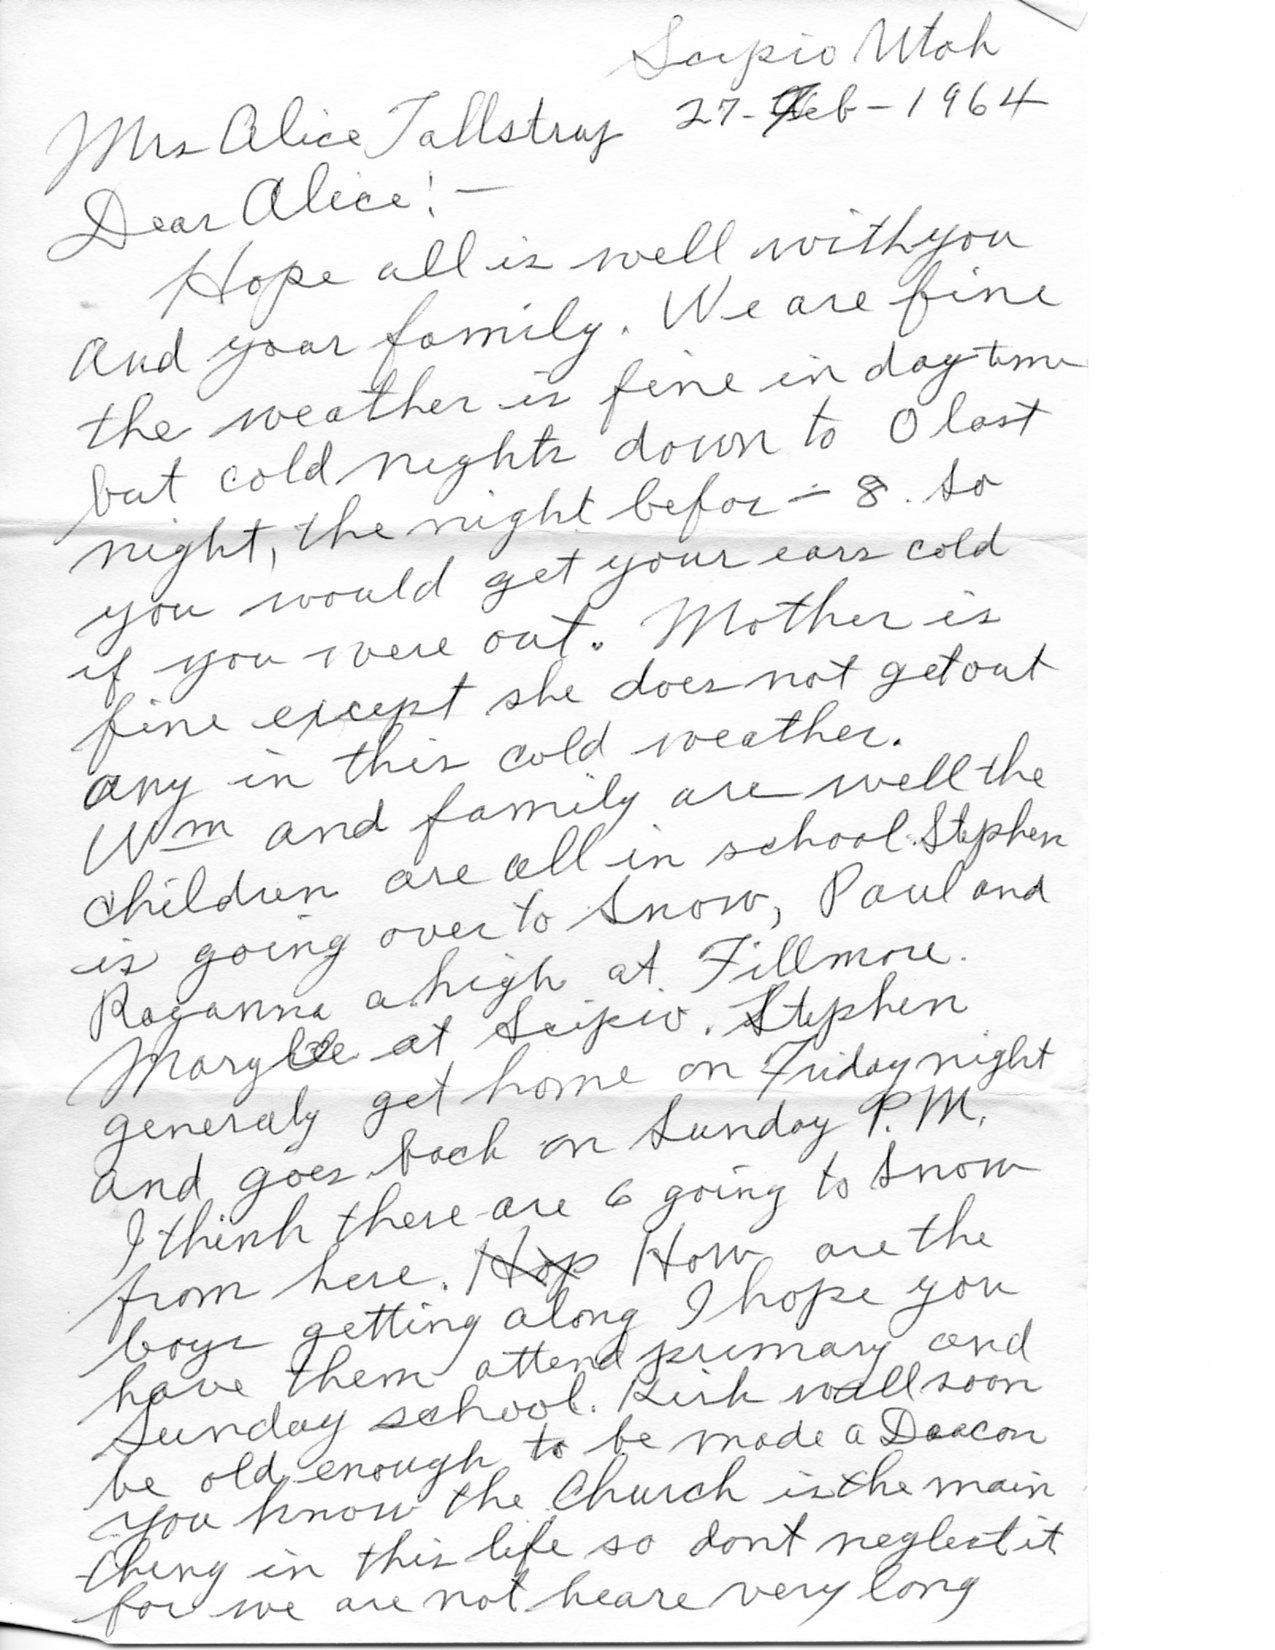 Scipio Utah
27-Feb-1964
Mrs Alice Tallstrup
Dear Alice! —
Hope all is well with you
and your family. We are fine
the weather is fine in day time
but cold nights down to 0 last
night, the night befor - 8. so
you would get your ears cold
if you were out. Mother is
fine except she does not get out
any in this cold weather.
Wm and family are well the
children are all in school. Stephen
is going over to Snow, Paul and
a high at Fillmore.
Marylee at Scipio. Stephen
generaly get home on Friday night
and goes back on Sunday P.M.
I think there are 6 going to Snow
from here. Hop How are the
boys getting along I hope you
have them attend primary and
Sunday school. Kirk will soon
be old enough to be made a Deacon
you know the Church is the main
thing in this life so dont neglect it
for we are not heare very long